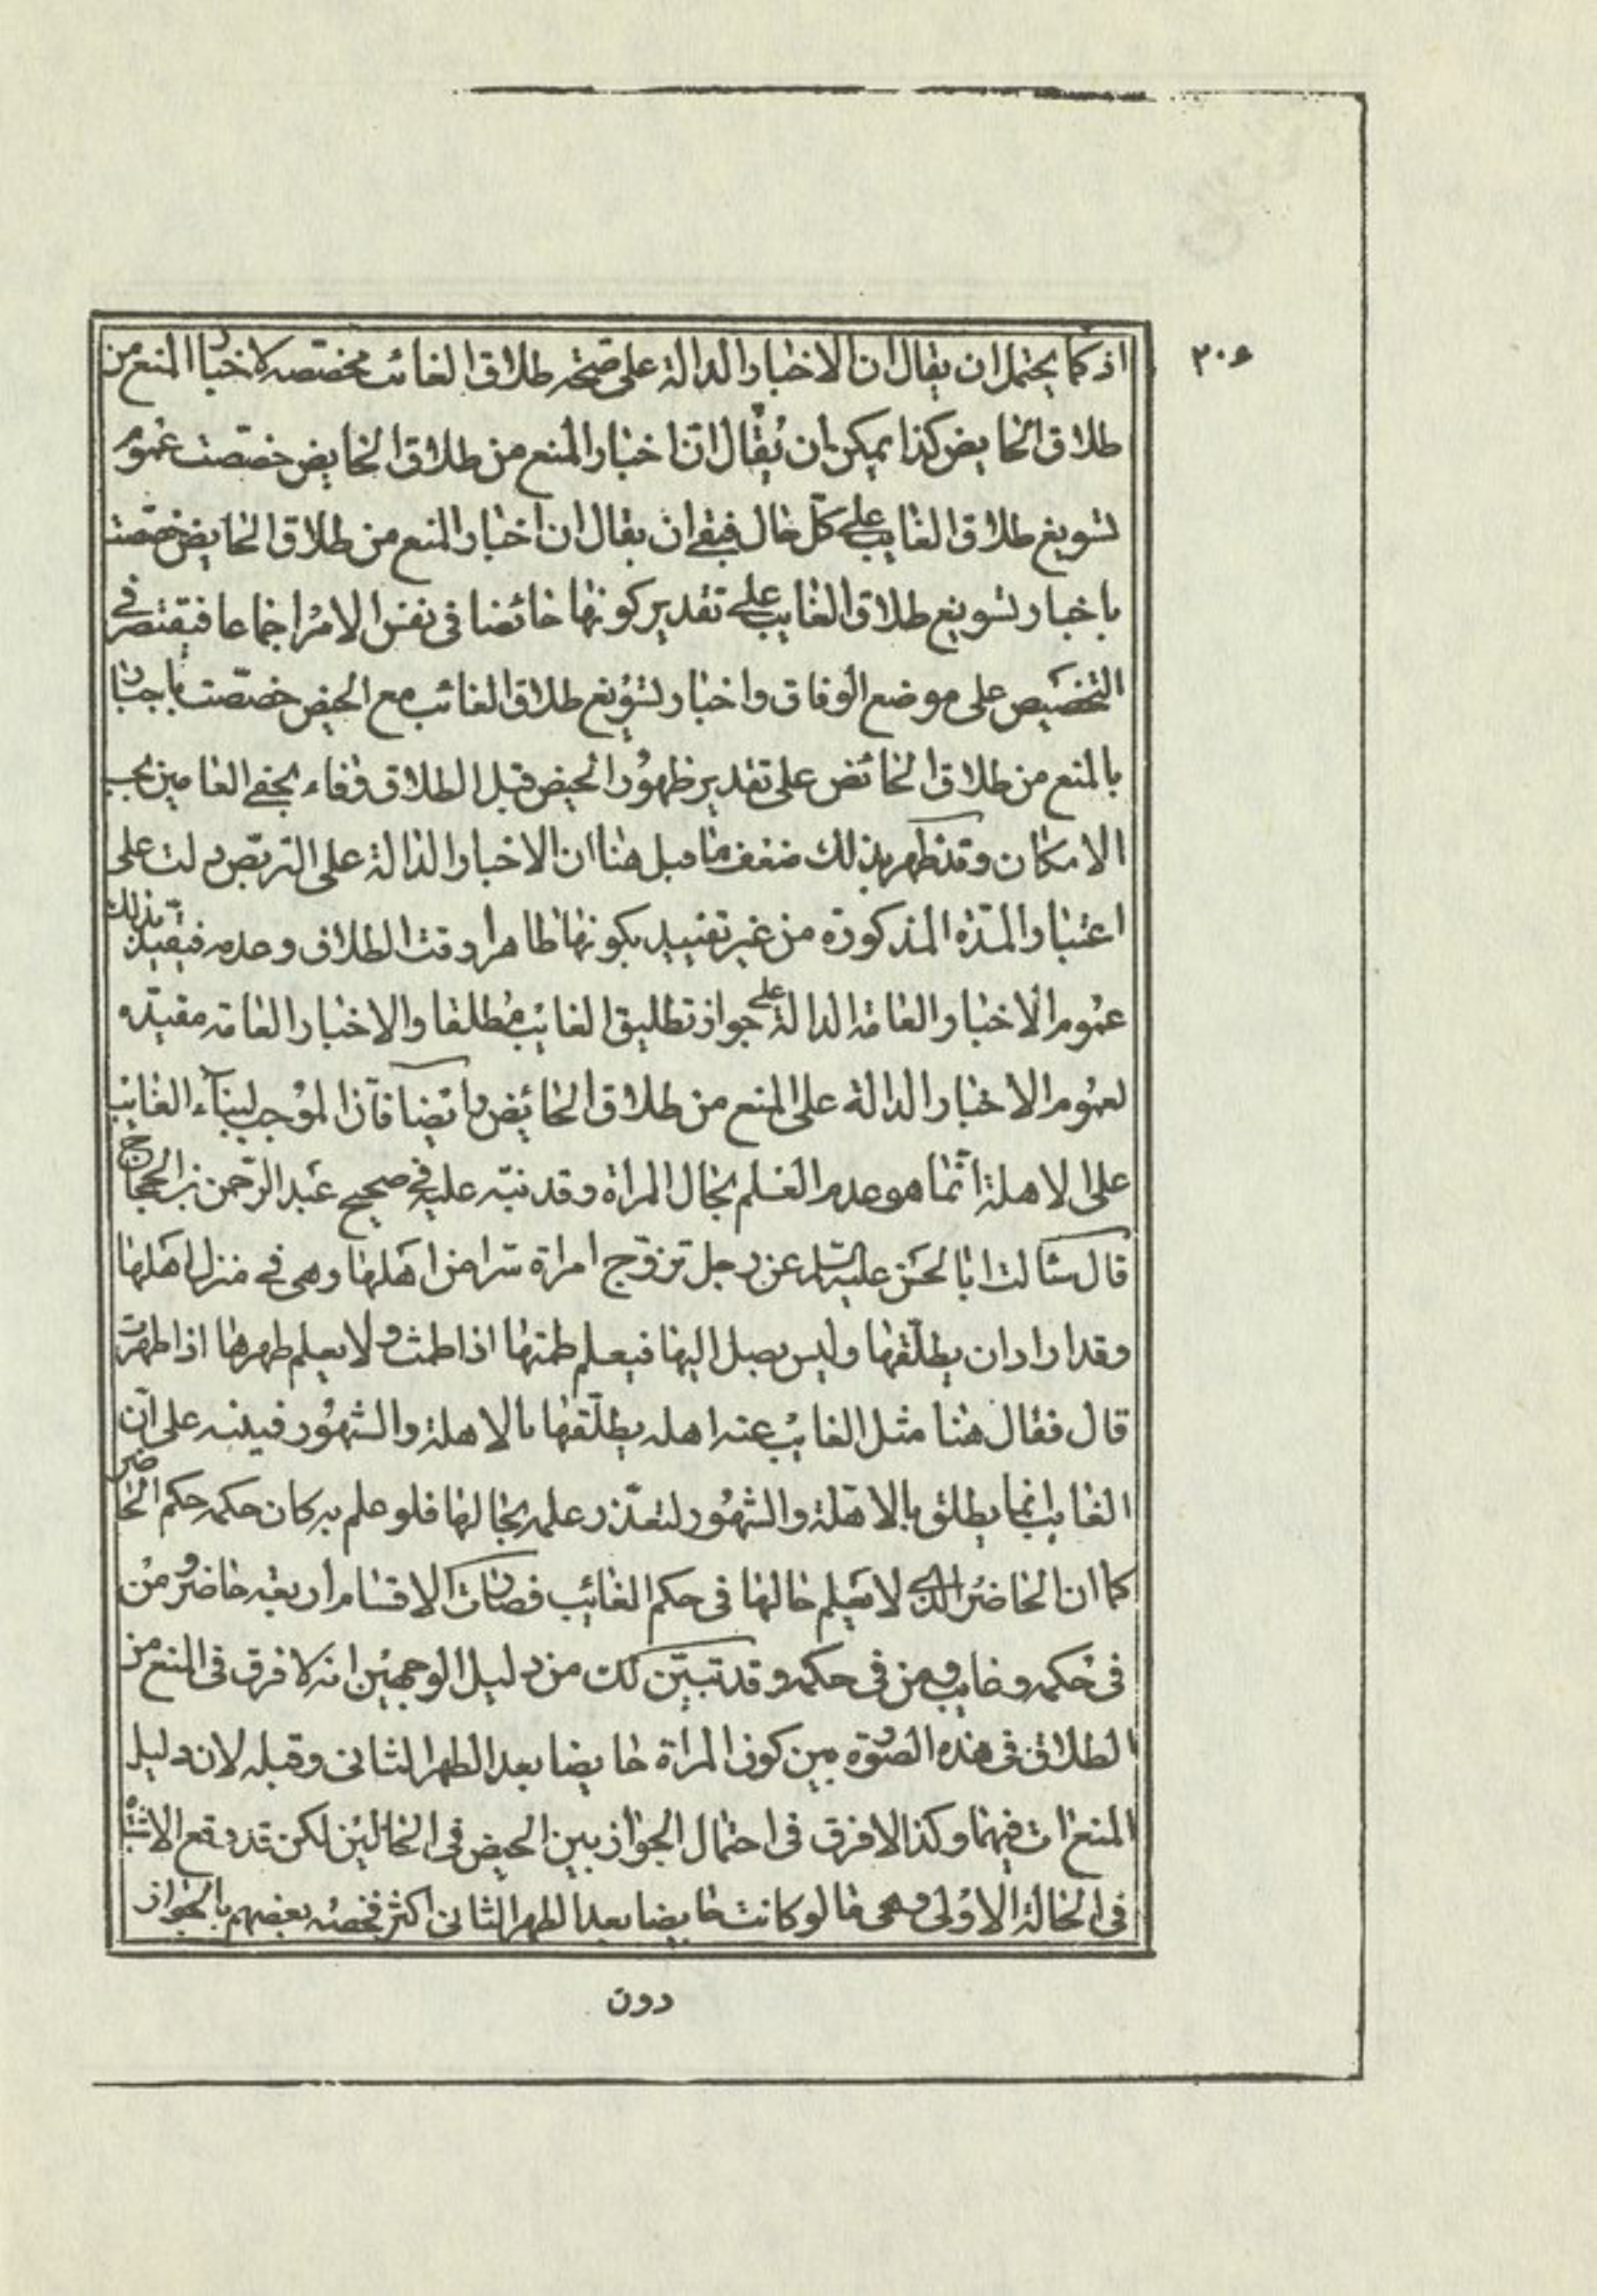 ٢٠٤
اذ كما يحتمل ان يقال ان الاخبار الدالة على صحّة طلاق الغائب مخصّصه لاخبار المنع من
طلاق الحايض كذا يمكن ان يقال انّ اخبار المنع من طلاق الحايض خصّصت عموم
تسويغ طلاق الغايب على كلّ حال فبقى ان يقال ان اخبار المنع من طلاق الحايض خصّصت
باخبار تسويغ طلاق الغايب على تقدير كونها حائضا فى نفس الامر اجماعا فيقتصر فى
التخصيص على موضع الوفاق واخبار تسويغ طلاق الغائب مع الحيض خصّصت باخبار
بالمنع من طلاق الحائض على تقدير ظهور الحيض قبل الطلاق وفاء بحق العامين بحسب
الامكان وقد ظهر بذلك ضعف ما قيل هنا ان الاخبار الدالة على التربّص دلت على
اعتبار المدّه المذكورة من غير تقييد بكونها طاهرا وقت الطلاق وعدمه فيقيد بذلك
عموم الاخبار العامّه الدالة على جواز تطليق الغائب مطلقا والاخبار العامّه مقيّده
لعموم الاخبار الدالة على المنع من طلاق الحائض وايضا فانّ الموجب لبناء الغائب
على الاهلة انّما هو عدم العلم بحال المراة وقد نبّه عليه فى صحيح عبد الرّحمن بن الحجاج
قال سئالت ابا الحسن عليه السلم عن رجل تزوّج امراة سّرا من اهلها وهى فى منزل اهلها
وقد اراد ان يطلّقها وليس يصل اليها فيعلم طمثها اذا طمثت ولا يعلم طهرها اذا طهرت
قال فقال هنا مثل الغائب عنه اهله يطلّقها بالاهلة والشهور فينبه على انّ
الغايب انما يطلق بالاهّلة والشهور لتعذّر علمه بحالها فلو علم به كان حكمه حكم الحاضر
كما ان الحاضر الذى لا يعلم حالها فى حكم الغائب فصارت الاقسام اربعة حاضر ومن
فى حكمه وغايب ومن فى حكمه وقد تبيّن لك من دليل الوجهين انه لا فرق فى المنع من
الطلاق فى هذه الصورة بين كون المراة حايضا بعد الطهر الثانى وقبله لان دليل
المنع ات فيهما وكذا لا فرق فى احتمال الجواز بين الحيض فى الحالين لكن قد وقع الاشتباه
فى الحالة الاولى وهى ما لو كانت حايضا بعد الطهر الثانى اكثر فخصّه بعضهم بالجواز
دون